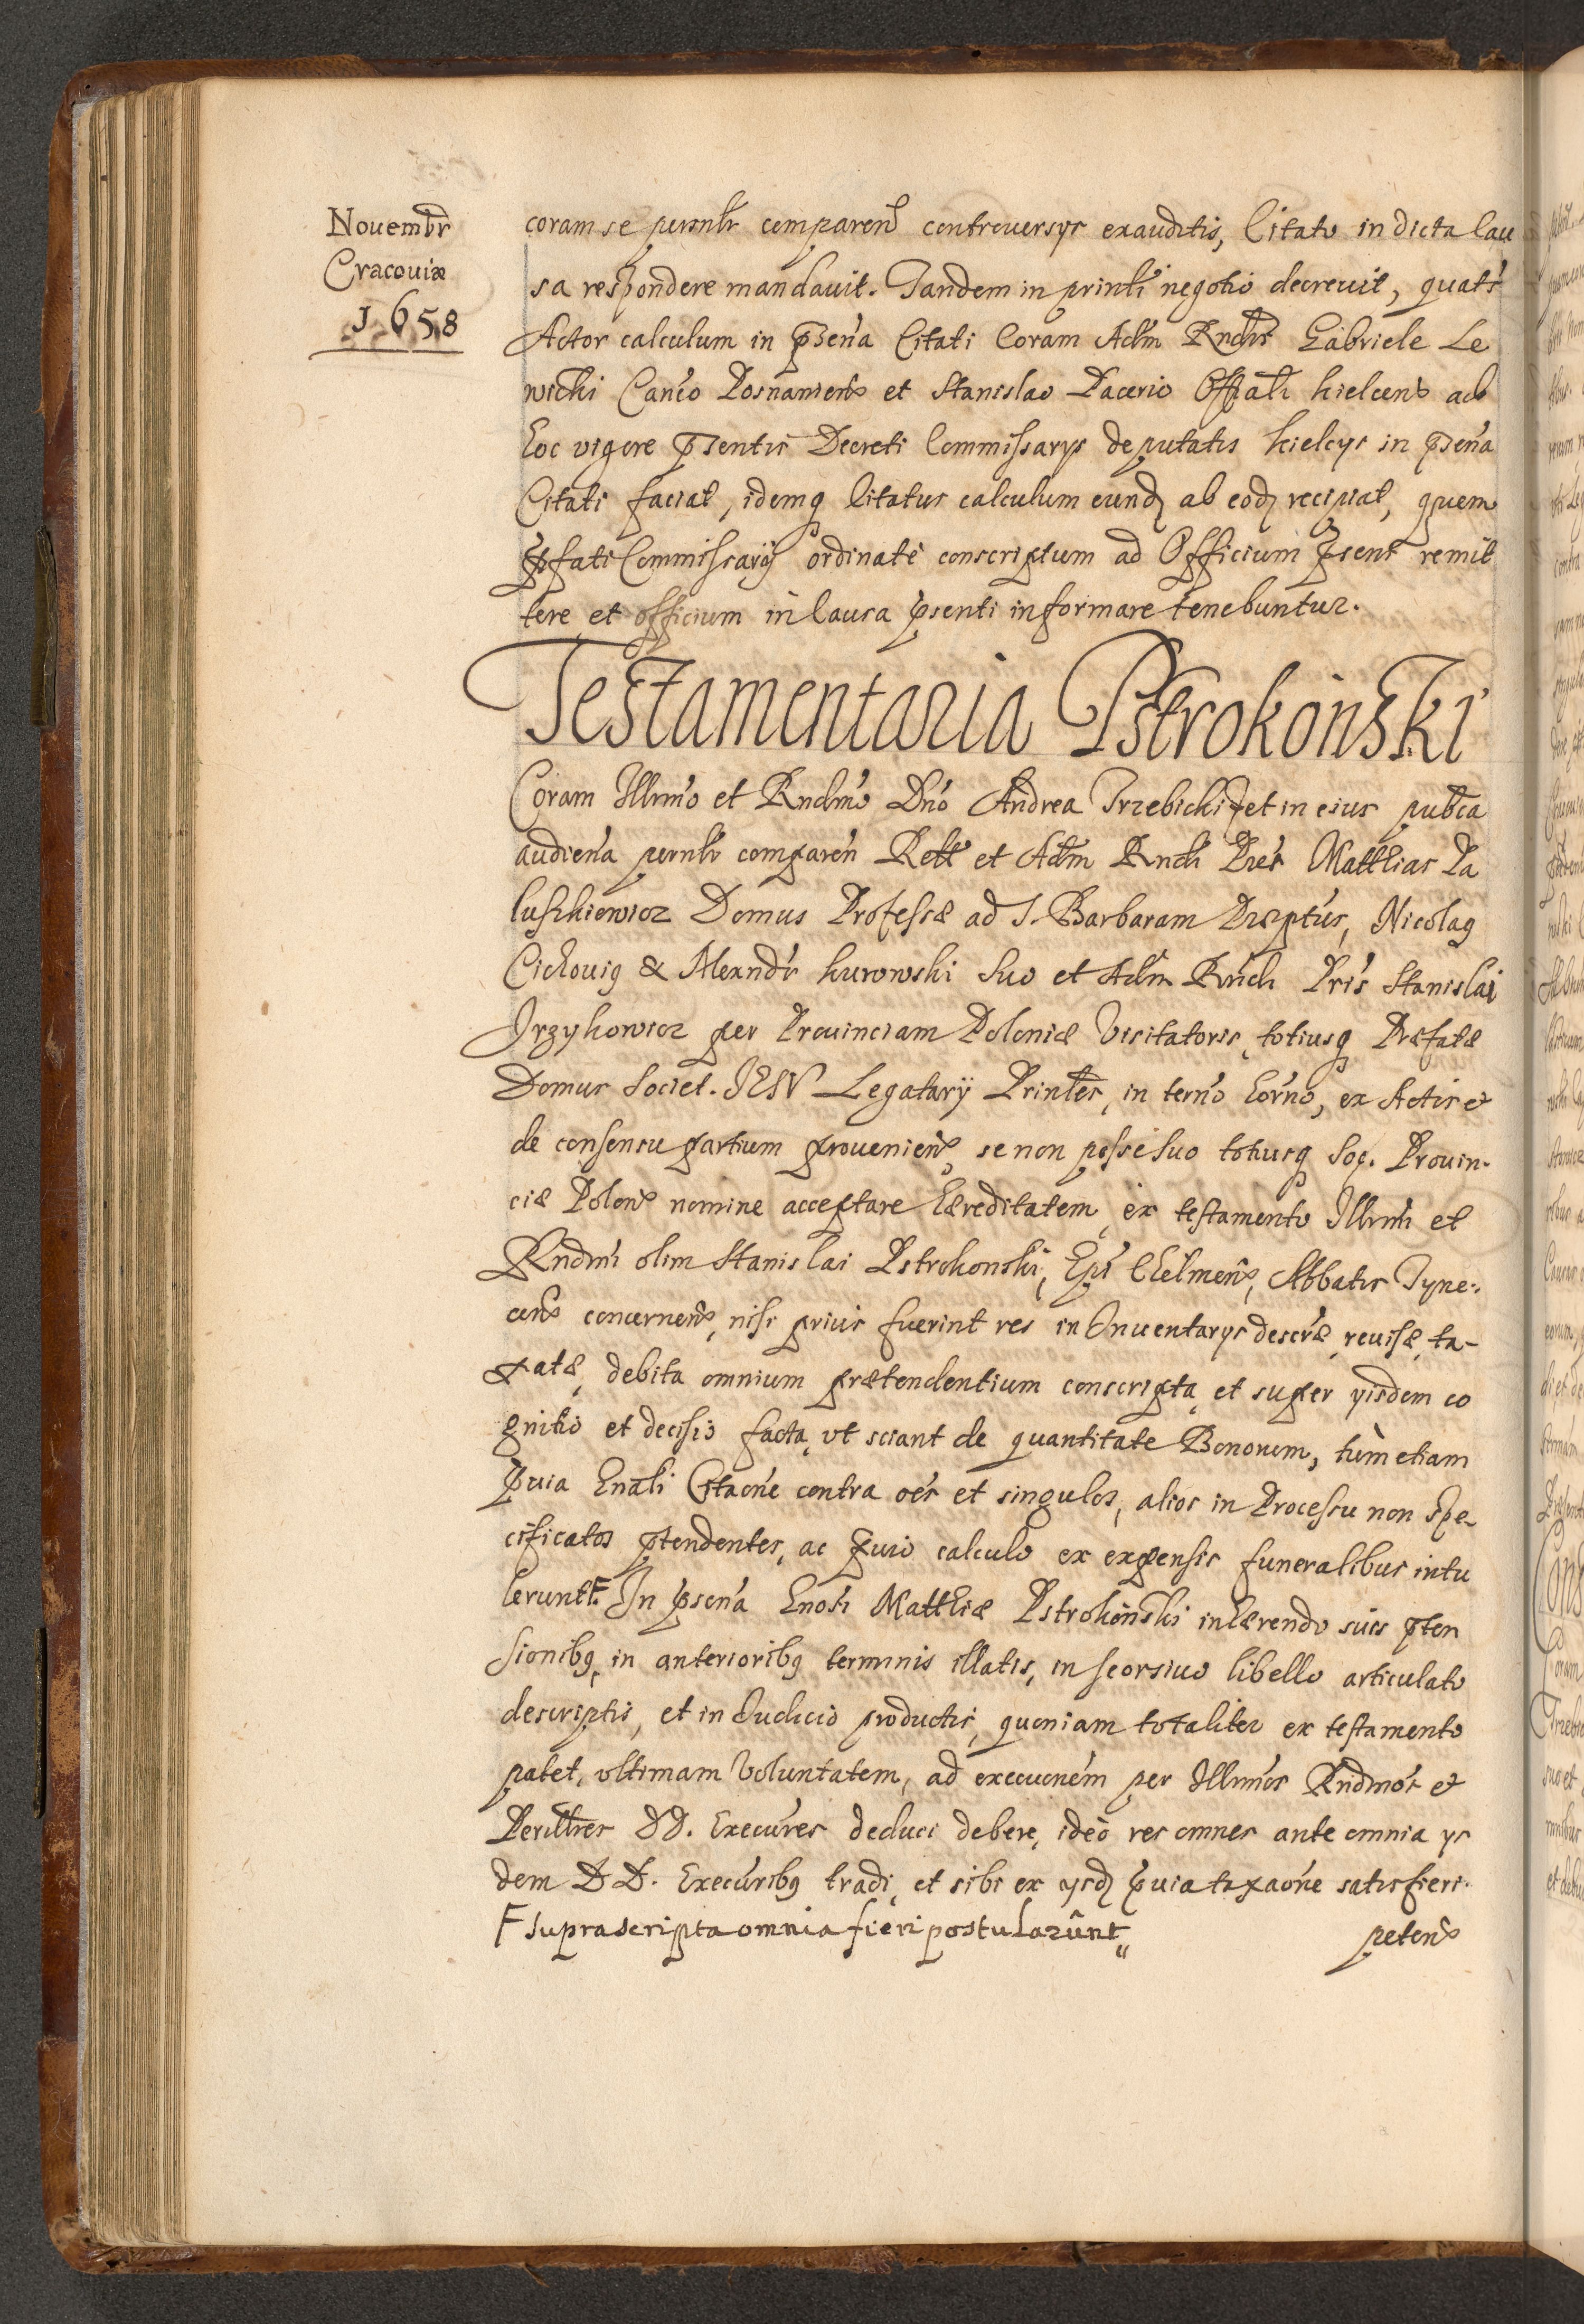 Nouembr
Cracouiæ
1658
coram se personlr comparen controuersys exauditis, Citato in dicta Cau
sa respondere mandauit. Tandem in printi negotio decreuit, quats
Actor calculum in psena Citati Coram Adm Rndis Gabriele Le
wichi Canco Posnamiens et Stanislao Pacerio Offiali kielcens ad
hoc vigore psentis Decreti Commissarys deputatis kielcys in psena
Citati faciat, idemq Citatus calculum eund ab eod recipiat, quem
pfati Commissarij ordinatè conscriptum ad Officium psens remit
tere et officium in Causa psenti informare tenebuntur.
Testamentaria Pstrokoński
Coram Illrmo et Rndmo Dno Andrea Trzebichi et in eius publca
audiena pernlr comparen Rel et Adm Rndi Pres Matthias Pa
luszkiewicz Domus Professæ ad S. Barbaram Præptus, Nicolaq
Cichouiq & Alexndr kurowski Suo et Adm Rndi Pris Stanislai
Irzykowicz per Prouinciam Poloniæ Visitatoris, totiusq Præfatæ
Domus Societ. IESV Legatarij Printes, in terno horno, ex Actis et
de consensu partium prouenien, se non posse suo totiusq Soc. Prouin-
ciæ Polon nomine acceptare hæreditatem, ex testamento Illrmi et
Rndmi olim Stanislai Pstrokonski, Epi Chelmens, Abbatis Tyne:
cens concernens, nisi prius fuerint res in Inuentarys descræ, reuisæ, ta-
xatæ, debita omnium prætendentium conscripta, et super yisdem co
gnitio et decisio facta, vt sciant de quantitate Bonorum, tùm etiam
quia Gnali Citaone contra oes et singulos, alios in Processu non spe-
cificatos ptendentes, ac puio calculo ex expensis funeralibus intu
lerunt F. In psena Gnosi Matthiæ Pstrokoński inhærendo suis pten
sionibq, in anterioribq terminis illatis, in seorsiuo libello articulato
descriptis, et in Iudicio productis, quoniam totaliter ex testamento
patet, vltimam Voluntatem, ad execuonem per Illrmos Rndmos et
Perillres DD. Execures deduci debere, ideò res omnes ante omnia ys
dem DD. Execuribq tradi, et sibi ex ysd puia taxaone satisfieri.
F suprascripta omnia fieri postularunt
petens